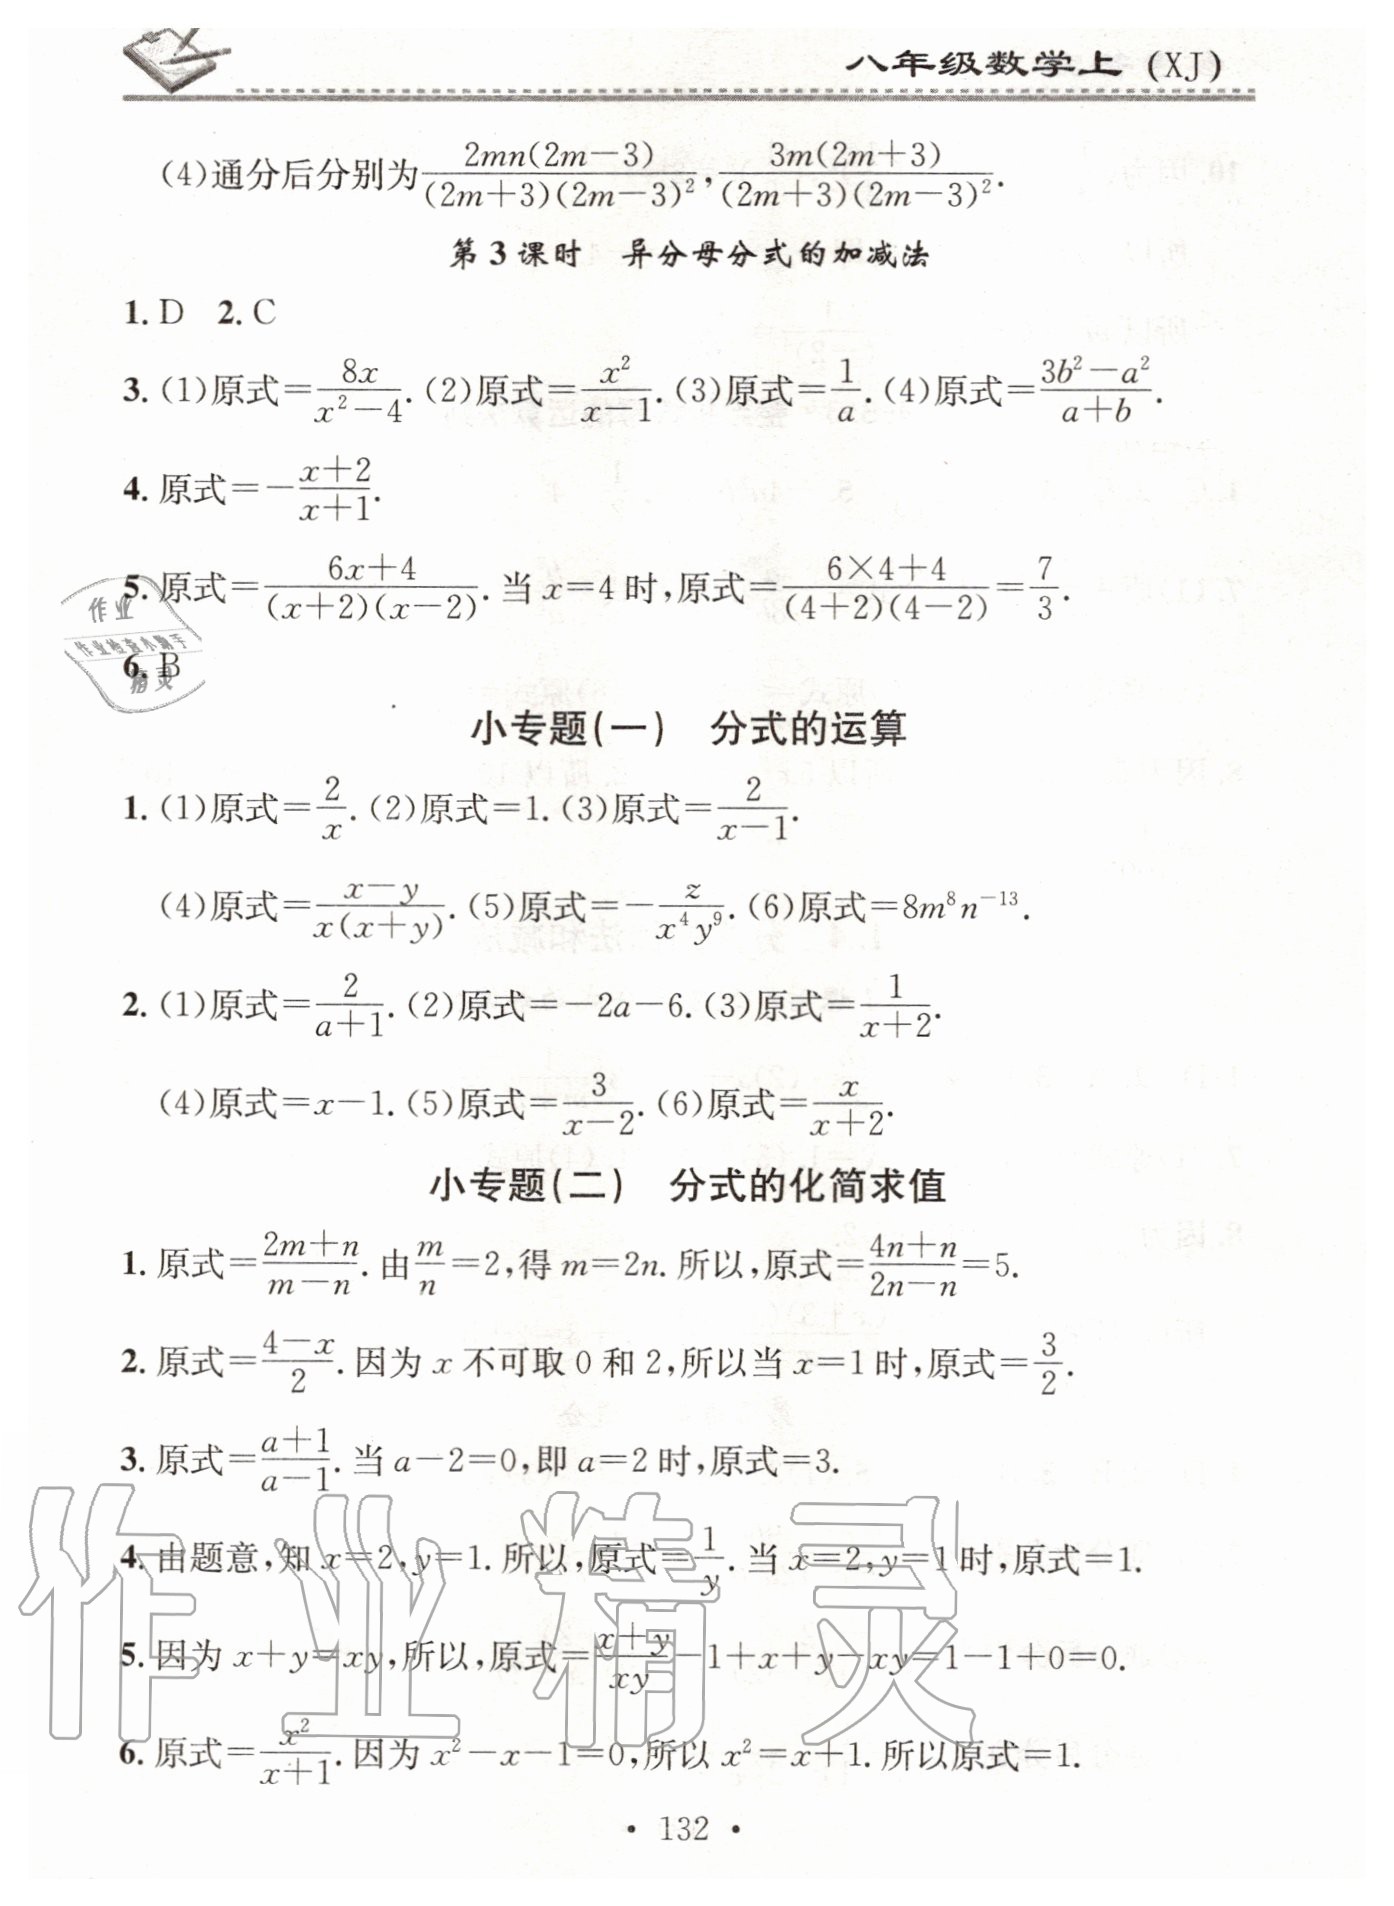 八年级数学上(XJ)
(4)通分后分别为 2mn(2m−3)/((2m+3)(2m−3)²), 3m(2m+3)/((2m+3)(2m−3)²).
第3课时 异分母分式的加减法
1. D 2. C
3. (1)原式=8x/(x²−4). (2)原式=x²/(x−1). (3)原式=1/a. (4)原式=(3b²−a²)/(a+b).
4. 原式=−(x+2)/(x+1).
5. 原式=(6x+4)/((x+2)(x−2)). 当 x=4 时,原式=(6×4+4)/((4+2)(4−2))=7/3.
6. B
小专题(一) 分式的运算
1. (1)原式=2/x. (2)原式=1. (3)原式=2/(x−1).
(4)原式=(x−y)/(x(x+y)). (5)原式=−z/(x⁴y⁹). (6)原式=8m⁸n⁻¹³.
2. (1)原式=2/(a+1). (2)原式=−2a−6. (3)原式=1/(x+2).
(4)原式=x−1. (5)原式=3/(x−2). (6)原式=x/(x+2).
小专题(二) 分式的化简求值
1. 原式=(2m+n)/(m−n). 由 m/n=2,得 m=2n. 所以,原式=(4n+n)/(2n−n)=5.
2. 原式=(4−x)/2. 因为 x 不可取 0 和 2,所以当 x=1 时,原式=3/2.
3. 原式=(a+1)/(a−1). 当 a−2=0,即 a=2 时,原式=3.
4. 由题意,知 x=2,y=1. 所以,原式=1/y. 当 x=2,y=1 时,原式=1.
5. 因为 x+y=xy,所以,原式=(x+y)/(xy)−1+x+y−xy=1−1+0=0.
6. 原式=x²/(x+1). 因为 x²−x−1=0,所以 x²=x+1. 所以原式=1.
• 132 •
作业
作业检查小助手
精灵
作业精灵